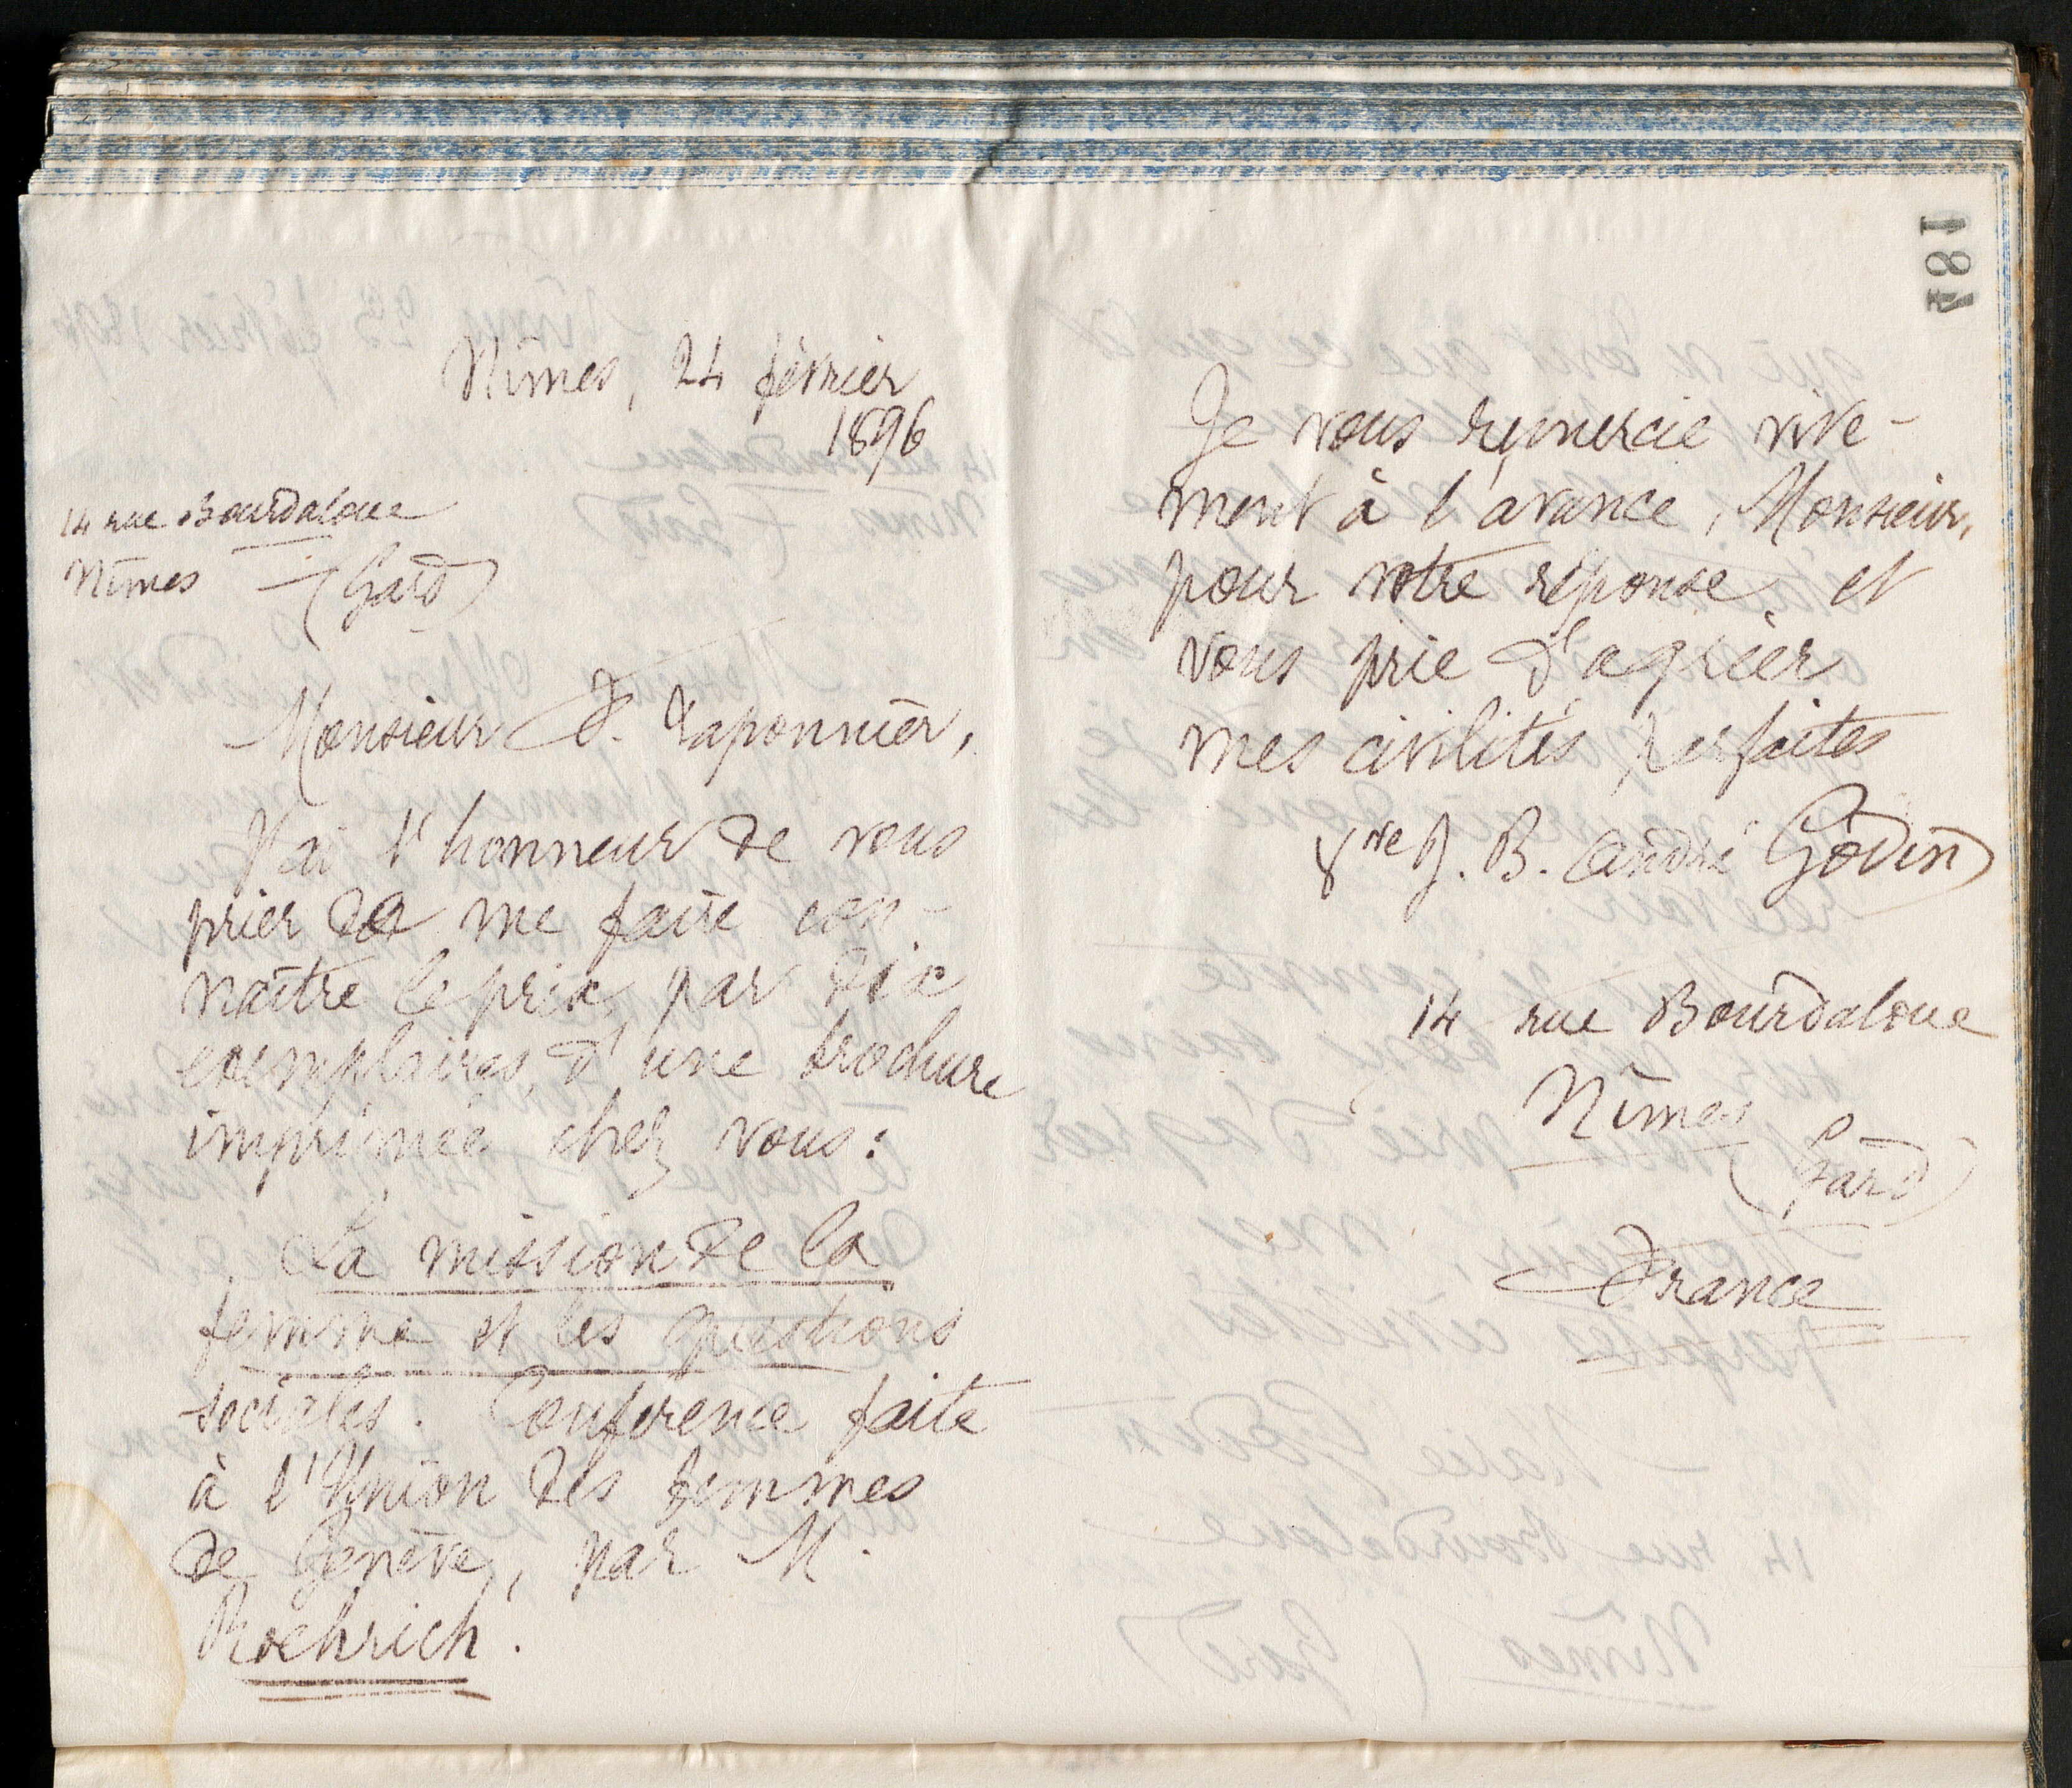 Nîmes, 24 février
1896
14 rue Bourdaloue
Nîmes — (Gard)
Monsieur F. Taponnier,
J'ai l'honneur de vous
prier de me faire con-
naître le prix, par dix
exemplaires, d'une brochure
imprimée chez vous:
La mission de la
femme et les questions
sociales. Conférence faite
à l'Union des femmes
de Genève, par M.
Roehrich.
187
Je vous remercie vive-
ment à l'avance, Monsieur,
pour votre réponse et
vous prie d'agréer
mes civilités parfaites
Vve J. B. André Godin
14 rue Bourdaloue
Nîmes
(Gard)
France